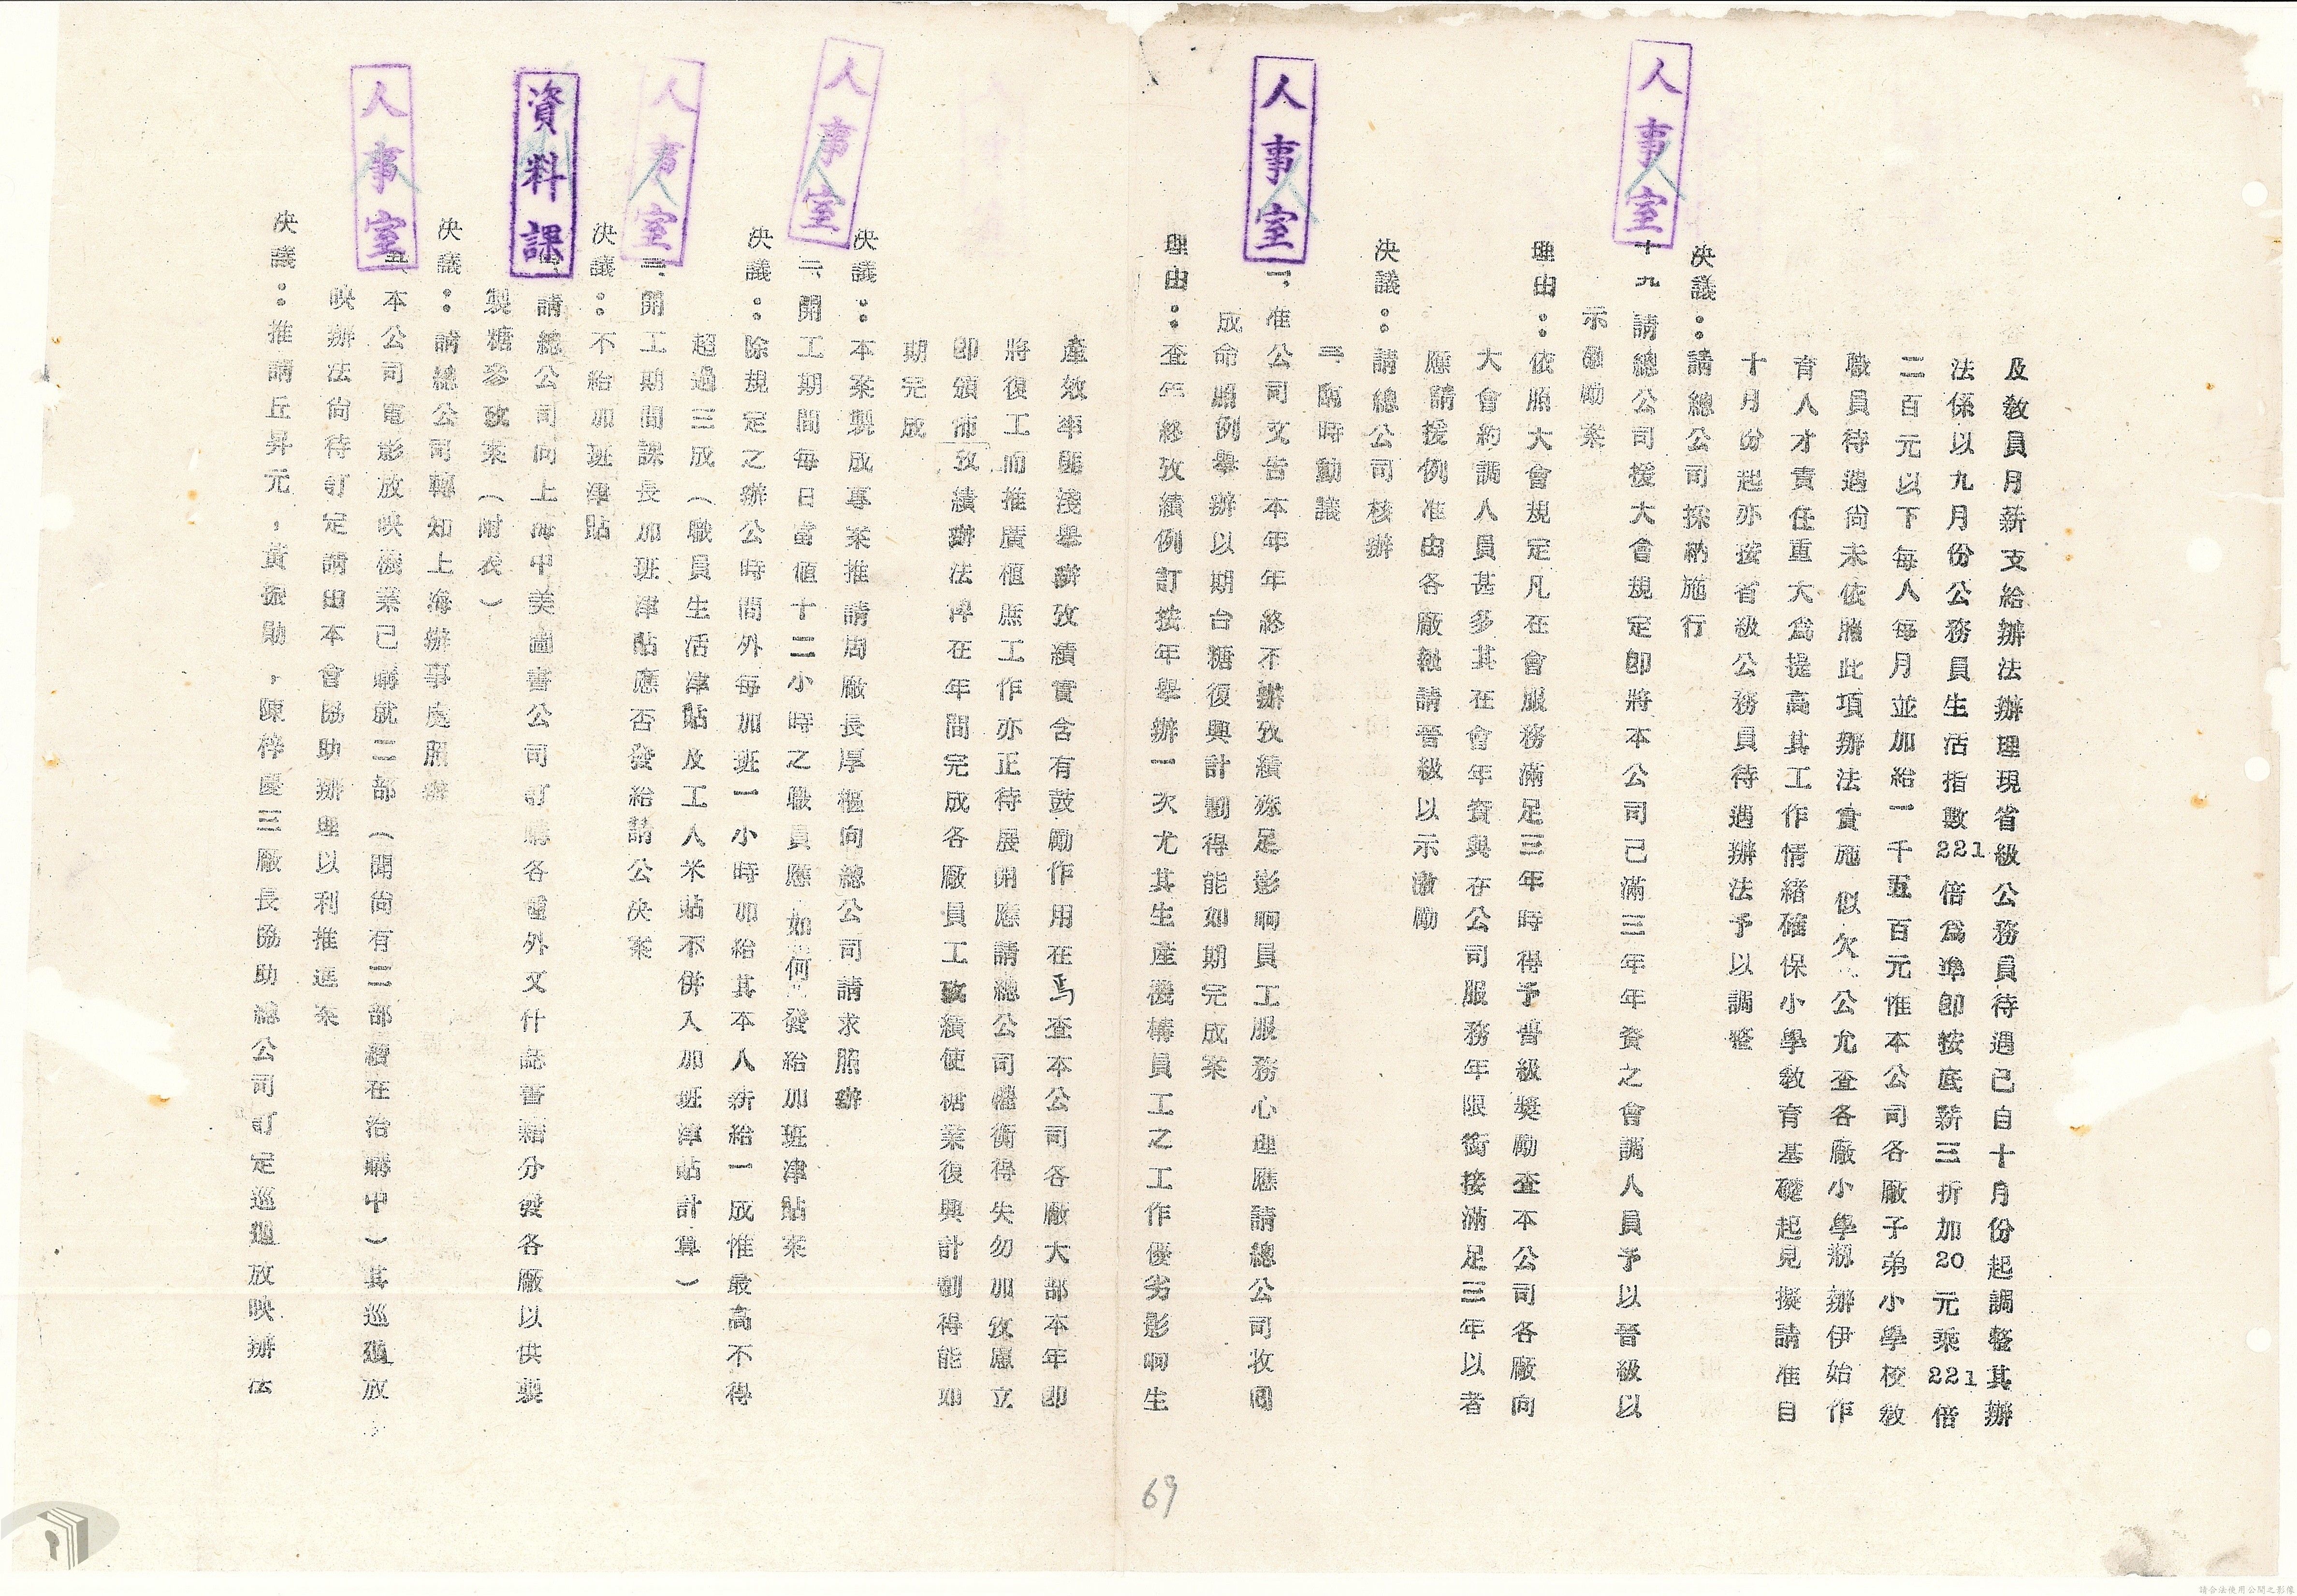 及敎員月薪支給辦法辦理現省級公務員待遇已自十月份起調整其辦
法係以九月份公務員生活指數221倍爲準卽按底薪三折加20元乘221倍
二百元以下每人每月並加給一千五百元惟本公司各廠子弟小學校敎
職員待遇尙未依照此項辦法實施似欠公允查各廠小學剏辦伊始作
育人才責任重大爲提高其工作情緒確保小學敎育基礎起見擬請准自
十月份起亦按省級公務員待遇辦法予以調整
決議：請總公司採納施行
十九 請總公司援大會規定卽將本公司已滿三年年資之會調人員予以晉級以
示激勵案
理由：依照大會規定凡在會服務滿足三年時得予晋級獎勵查本公司各廠向
大會約調人員甚多其在會年資與在公司服務年限銜接滿足三年以者
應請援例准由各廠報請晋級以示激勵
決議：請總公司核辦
三、臨時動議
一、准公司文告本年年終不辦攷績殊足影响員工服務心理應請總公司收囘
成命照例舉辦以期台糖復興計劃得能如期完成案
理由：查年終攷績例訂按年舉辦一次尤其生產機構員工之工作優劣影响生
產效率匪淺舉辦攷績實含有鼓勵作用在焉查本公司各廠大部本年卽
將復工而推廣植蔗工作亦正待展開應請總公司權衡得失勿加攷慮立
卽頒佈攷績辦法俾在年間完成各廠員工攷績使糖業復興計劃得能如
期完成
決議：本案製成專案推請周廠長厚樞向總公司請求照辦
二、開工期間每日當值十二小時之職員應如何發給加班津貼案
決議：除規定之辦公時間外每加班一小時加給其本人薪給一成惟最高不得
超過三成（職員生活津貼及工人米貼不併入加班津貼計算）
三、開工期間課長加班津貼應否發給請公決案
決議：不給加班津貼
四、請總公司向上海中美圖書公司訂購各種外文什誌書籍分發各廠以供製
製糖參攷案（附表）
決議：請總公司轉知上海辦事處照辦
五、本公司電影放映機業已購就二部（聞尙有二部續在洽購中）其巡迴放
映辦法尙待訂定請由本會協助辦理以利推進案
決議：推請丘昇元，黃振勛，陳梓慶三廠長協助總公司訂定巡迴放映辦法
人事室
人事室
人事室
人事室
資料課
人事室
69
請合法使用公開之影像